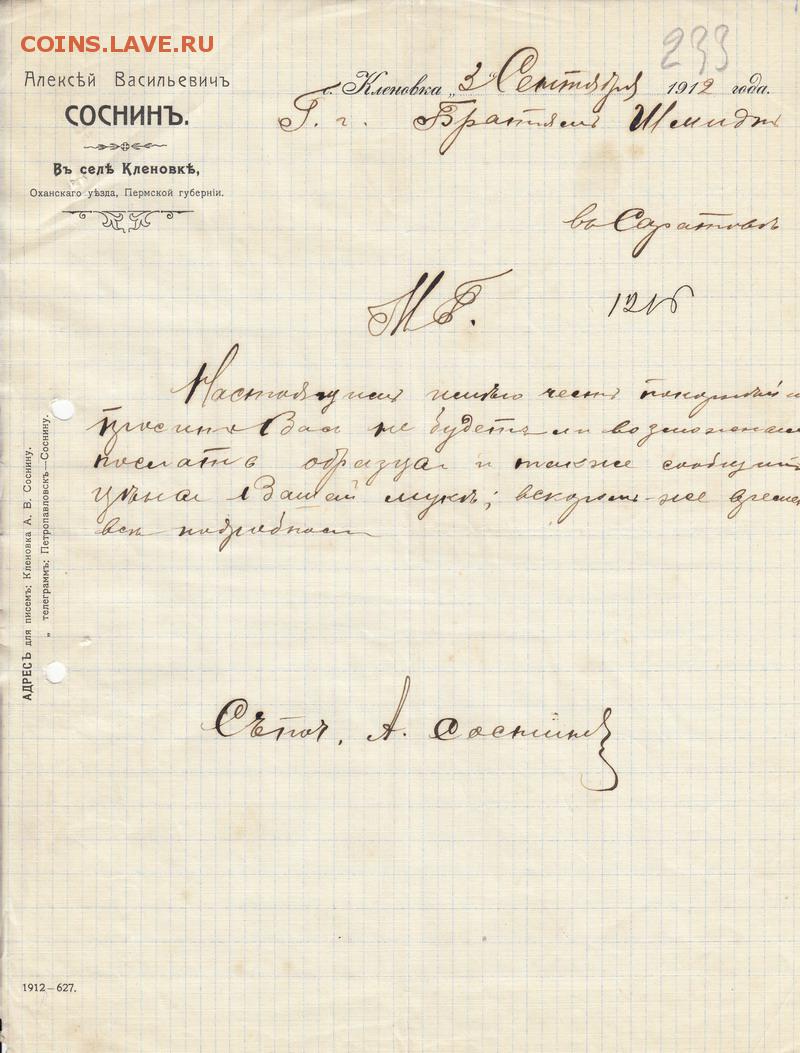 COINS.LAVE.RU
233
Алексѣй Васильевичъ
СОСНИНЪ.
Въ селѣ Кленовкѣ,
Оханскаго уѣзда, Пермской губерніи.
с. Кленовка „3" Сентября 1912 года.
Г. г. Братьям Шмидт
въ Саратовѣ
М Г.
Настоящим имѣю честь покорнѣй
просить Вас не будет ли возможным
послать образца и также сообщить
цѣна Вашей мукѣ; вскорѣ же
всѣ подробности
Съ поч. А. Соснинъ
АДРЕСЪ для писемъ: Кленовка А. В. Соснину.
„ телеграммъ: Петропавловскъ—Соснину.
1912—627.